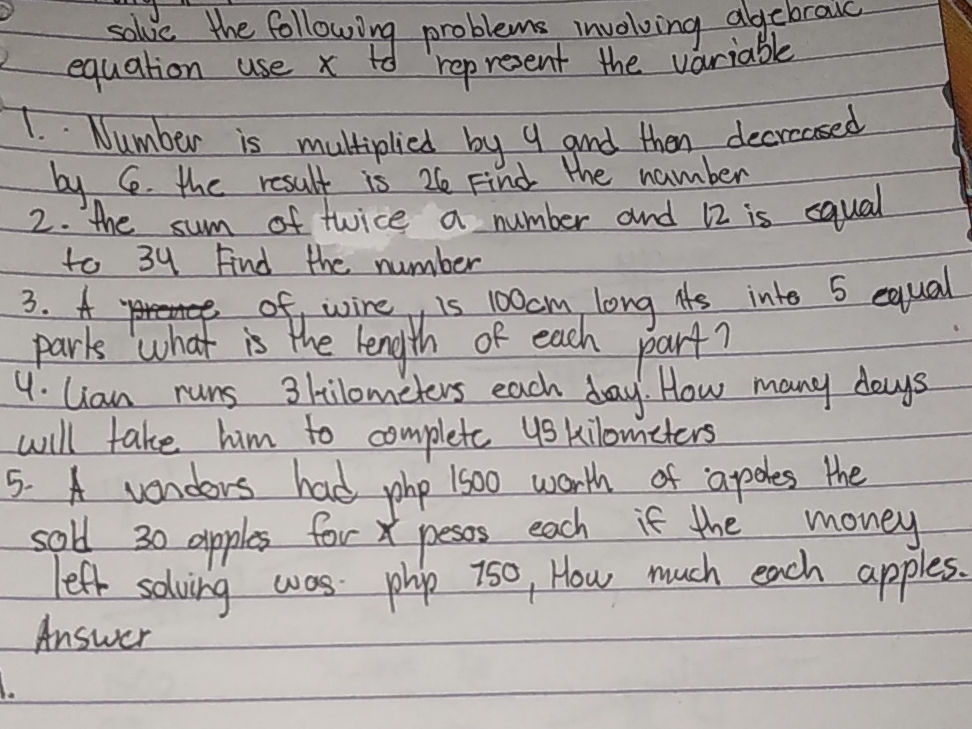 solve the following problems involving algebraic
equation use x to represent the variable
1. Number is multiplied by 4 and then decreased
by 6. the result is 26 Find the number
2. The sum of twice a number and 12 is equal
to 34 Find the number
3. A of wire, is 100cm long its into 5 equal
parts what is the length of each part?
4. Lian runs 3 kilometers each day. How many days
will take him to complete 45 kilometers
5. A vendors had php 1500 worth of apples the
sold 30 apples for x pesos each if the money
left solving was php 750, How much each apples.
Answer
1.